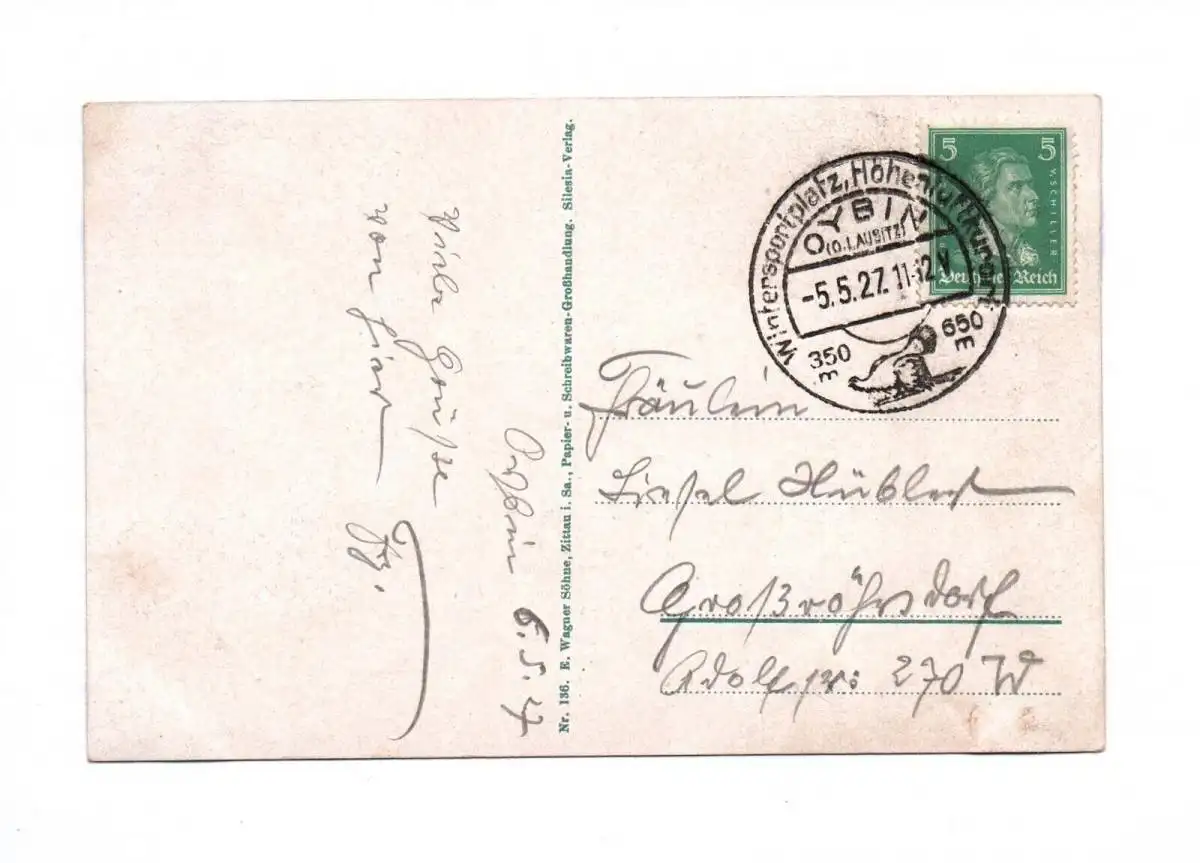 Oybin 6.5.27
Viele Grüße
von hier
Nr. 136. E. Wagner Söhne, Zittau i. Sa., Papier- u. Schreibwaren-Großhandlung. Silesia-Verlag.
5 5
W. SCHILLER
Deutsches Reich
Wintersportplatz, Höhenluftkurort
OYBIN
(O. LAUSITZ)
-5.5.27. 11-12 V
350 m
650 m
Fräulein
Liesel Hübler
Großröhrsdorf
Adolfstr: 270 W